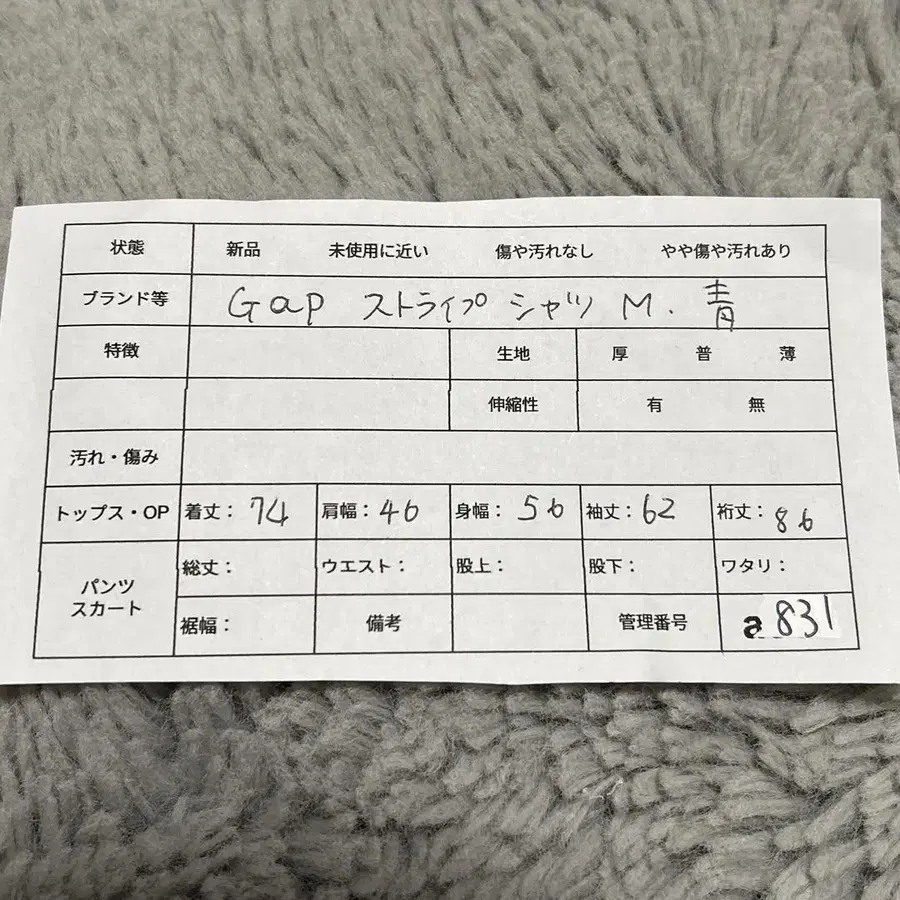 状態 新品 未使用に近い 傷や汚れなし やや傷や汚れあり
ブランド等 Gap ストライプ シャツ M. 青
特徴 生地 厚 普 薄
伸縮性 有 無
汚れ・傷み
トップス・OP 着丈： 74 肩幅： 46 身幅： 56 袖丈： 62 裄丈： 86
パンツ スカート 総丈： ウエスト： 股上： 股下： ワタリ：
裾幅： 備考 管理番号 a 831